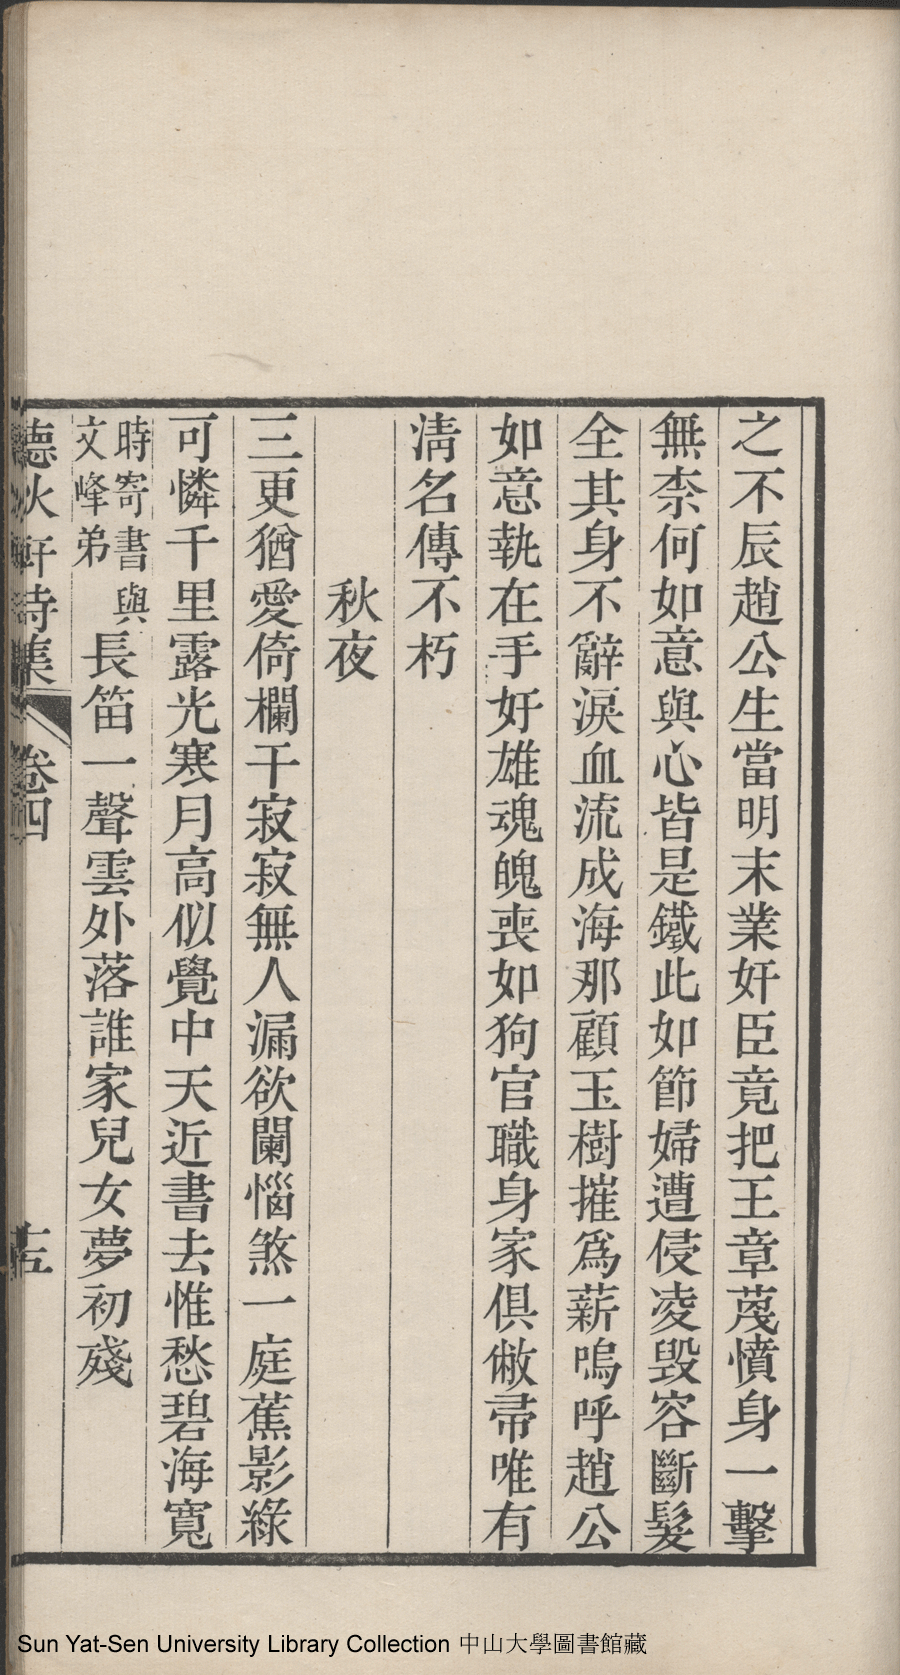 之不辰趙公生當明末業奸臣竟把王章蔑憤身一擊
無柰何如意與心皆是鐵此如節婦遭侵凌毀容斷髮
全其身不辭淚血流成海那顧玉樹摧爲薪嗚呼趙公
如意執在手奸雄魂魄喪如狗官職身家俱敝帚唯有
淸名傳不朽
秋夜
三更猶愛倚欄干寂寂無人漏欲闌惱煞一庭蕉影綠
可憐千里露光寒月高似覺中天近書去惟愁碧海寬
時寄書與
文峰弟
長笛一聲雲外落誰家兒女夢初殘
軒詩集
卷四
Sun Yat-Sen University Library Collection 中山大學圖書館藏